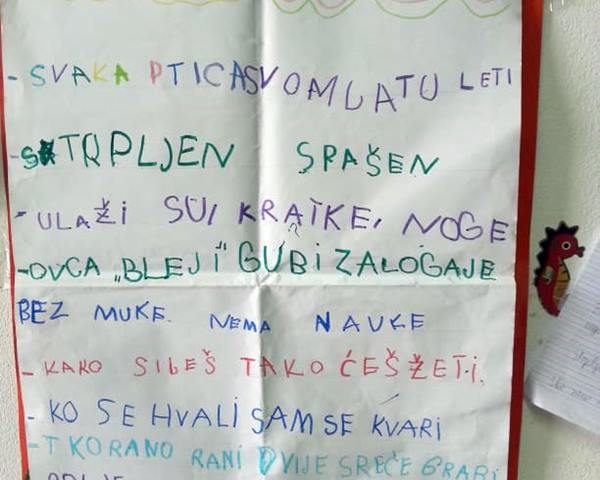 - SVAKA PTICA SVOM JATU LETI
- STRPLJEN SPAŠEN
- ULAŽI SU KRATKE NOGE
- OVCA „BLEJI" GUBI ZALOGAJE
BEZ MUKE NEMA NAUKE
- KAKO SIJEŠ TAKO ĆEŠ ŽETI.
- KO SE HVALI SAM SE KVARI
- TKO RANO RANI DVIJE SREĆE GRABI